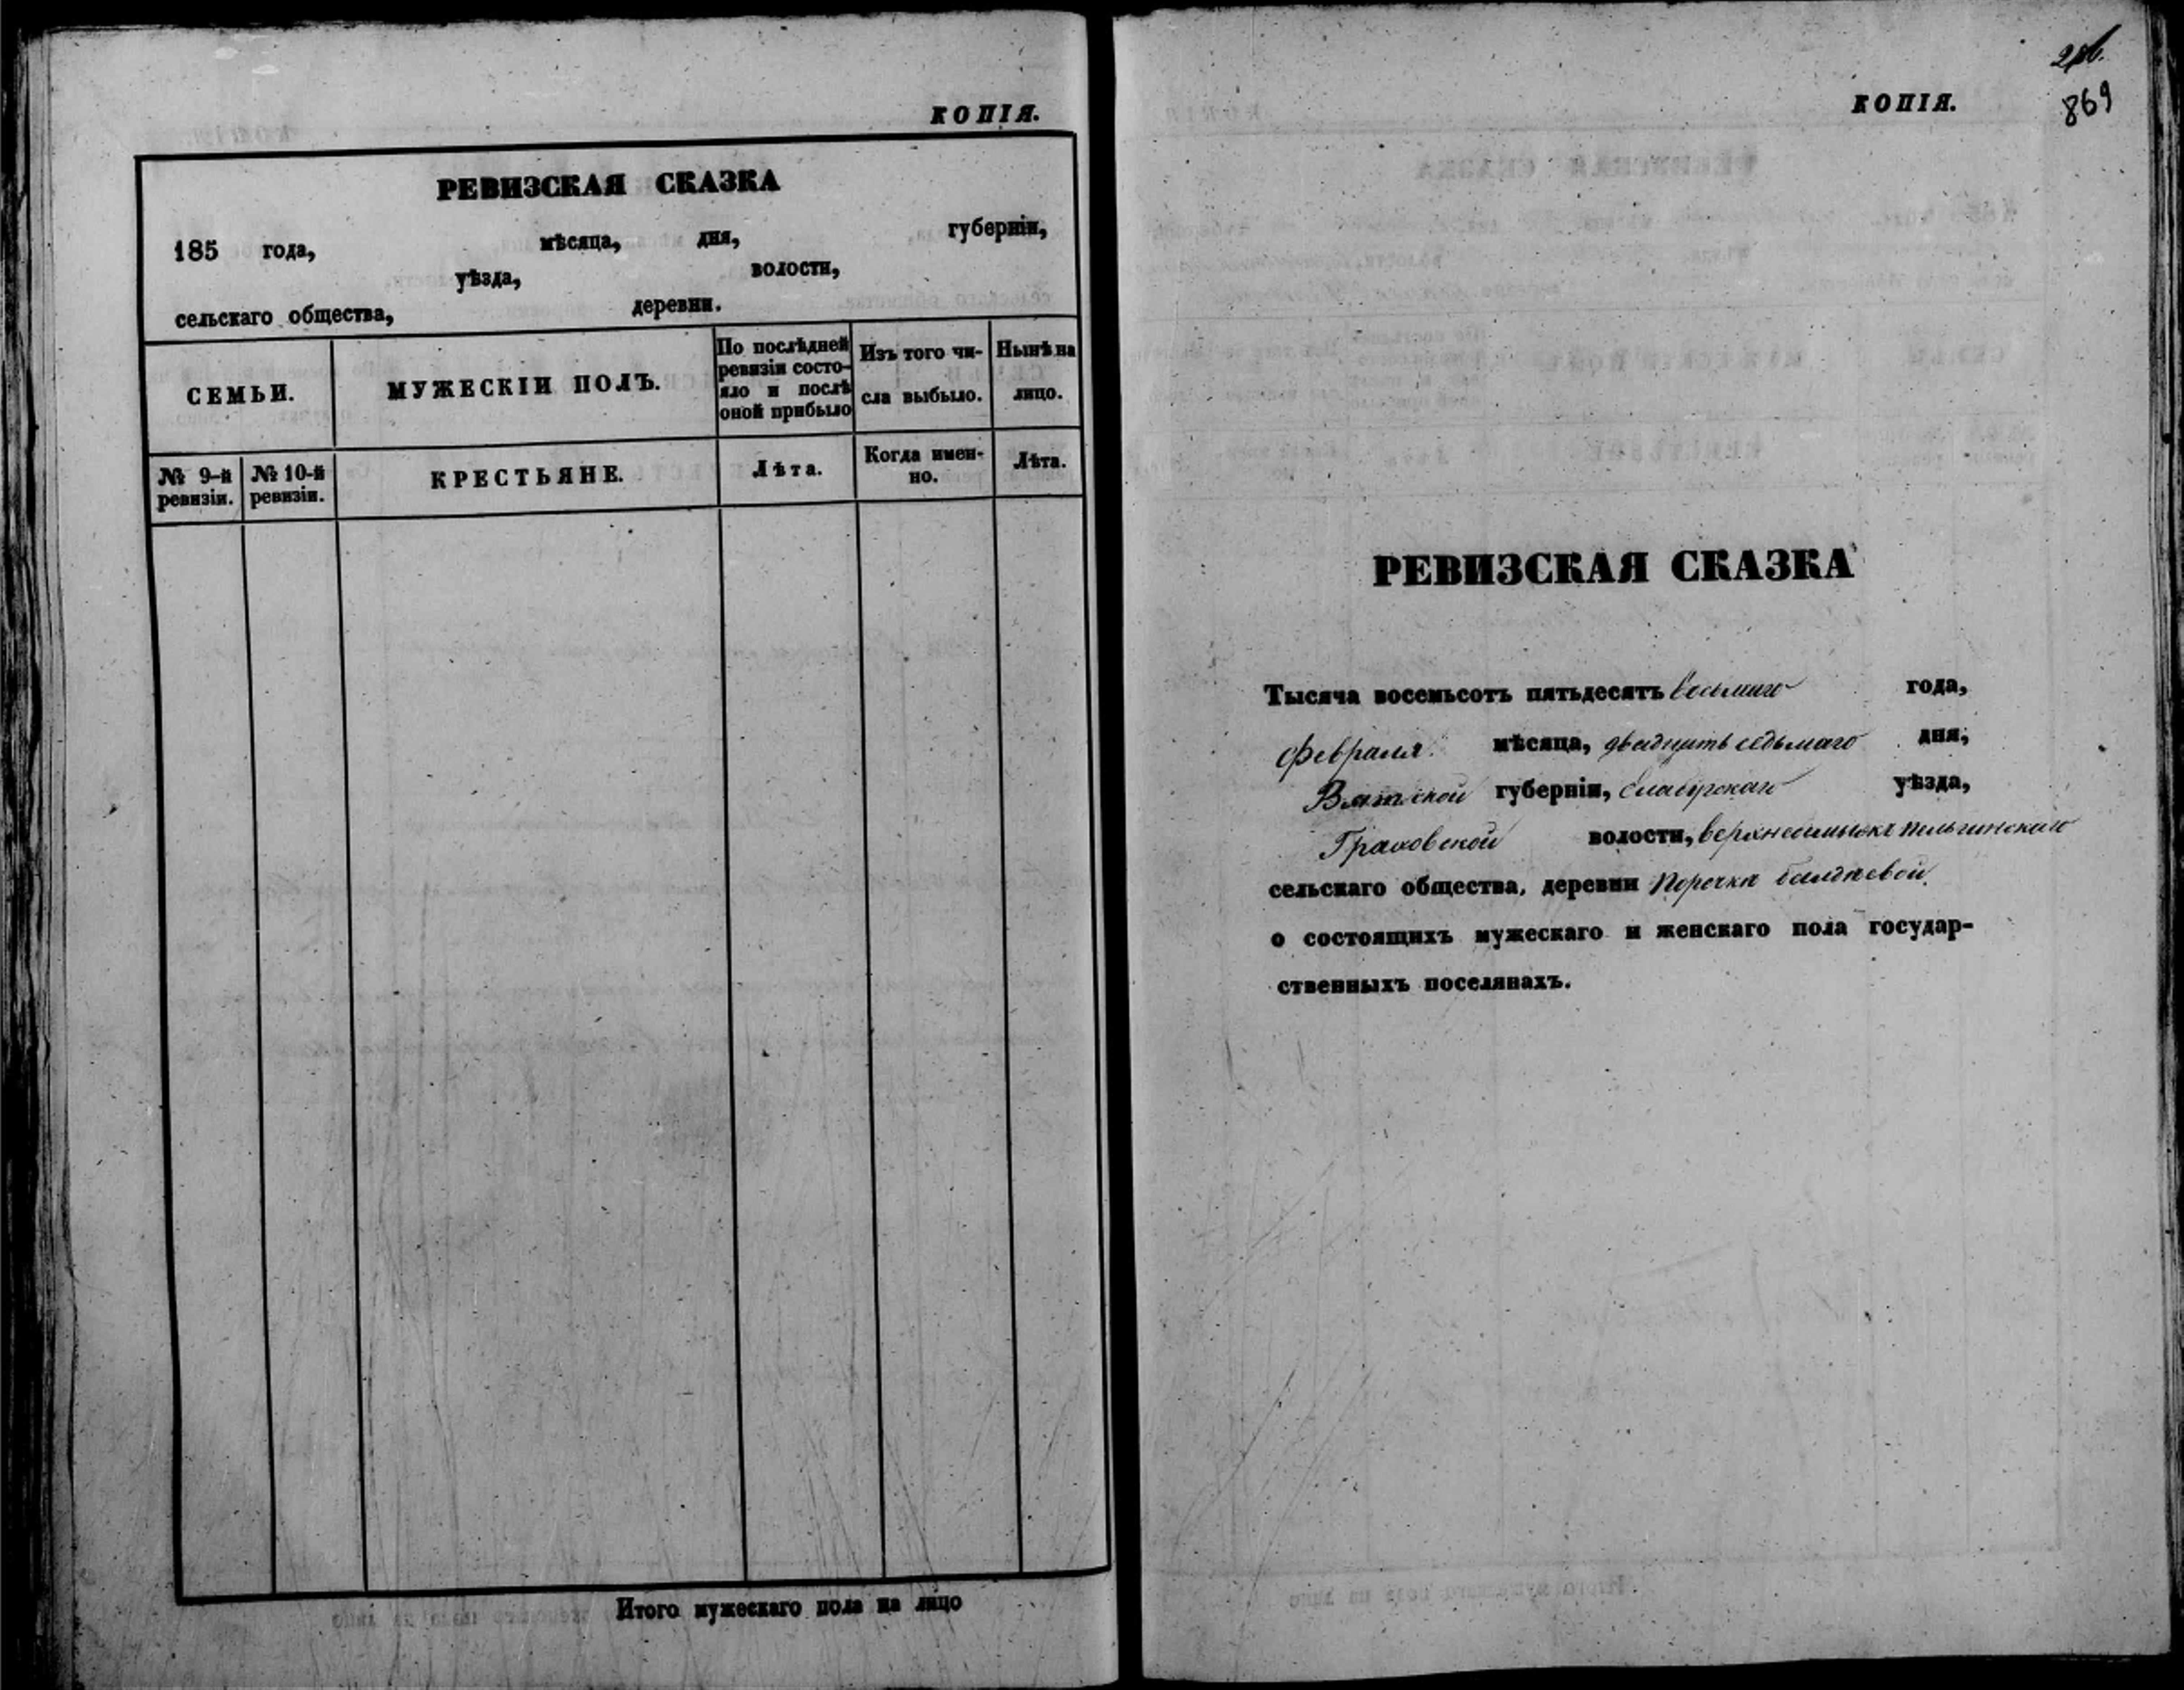 КОПІЯ.
РЕВИЗСКАЯ СКАЗКА
185 года, мѣсяца, дня, губерніи,
уѣзда, волости,
сельскаго общества, деревни.
СЕМЬИ.
МУЖЕСКІИ ПОЛЪ.
По послѣдней
ревизіи состо-
яло и послѣ
оной прибыло
Изъ того чи-
сла выбыло.
Нынѣ на
лицо.
№ 9-й
ревизіи.
№ 10-й
ревизіи.
КРЕСТЬЯНЕ.
Лѣта.
Когда имен-
но.
Лѣта.
Итого мужескаго пола на лицо
869
КОПІЯ.
РЕВИЗСКАЯ СКАЗКА
Тысяча восемьсотъ пятьдесятъ восьмаго года,
Февраля мѣсяца, двадцать седьмаго дня,
Вятской губерніи, Елабужскаго уѣзда,
Граховской волости,
сельскаго общества, деревни
о состоящихъ мужескаго и женскаго пола государ-
ственныхъ поселянахъ.